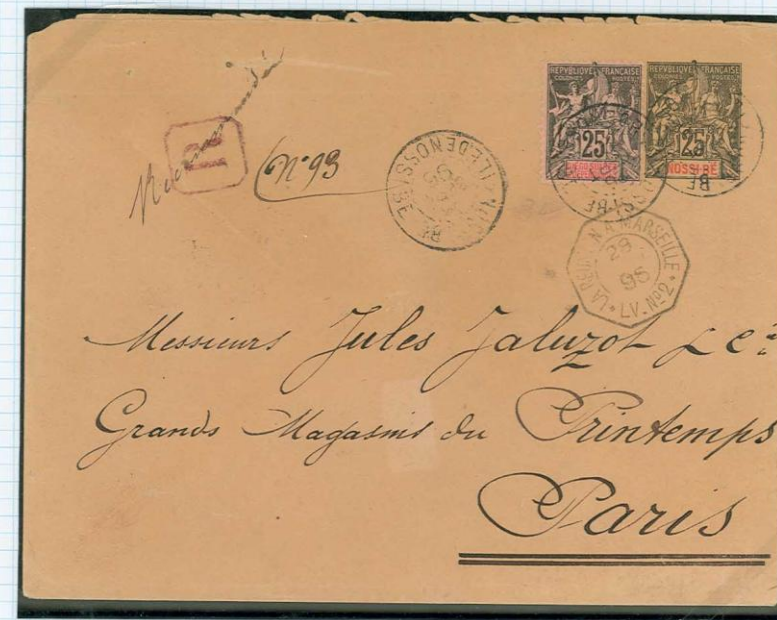 Recommandé
R
N° 93
REPUBLIQUE FRANÇAISE
COLONIES POSTES
25
REPUBLIQUE FRANÇAISE
COLONIES POSTES
25
NOSSI-BÉ
ILE DE NOSSI-BÉ
95
LA RÉUNION A MARSEILLE
28
95
L.V. Nº 2
Messieurs Jules Jaluzot & Cie
Grands Magasins du Printemps
Paris